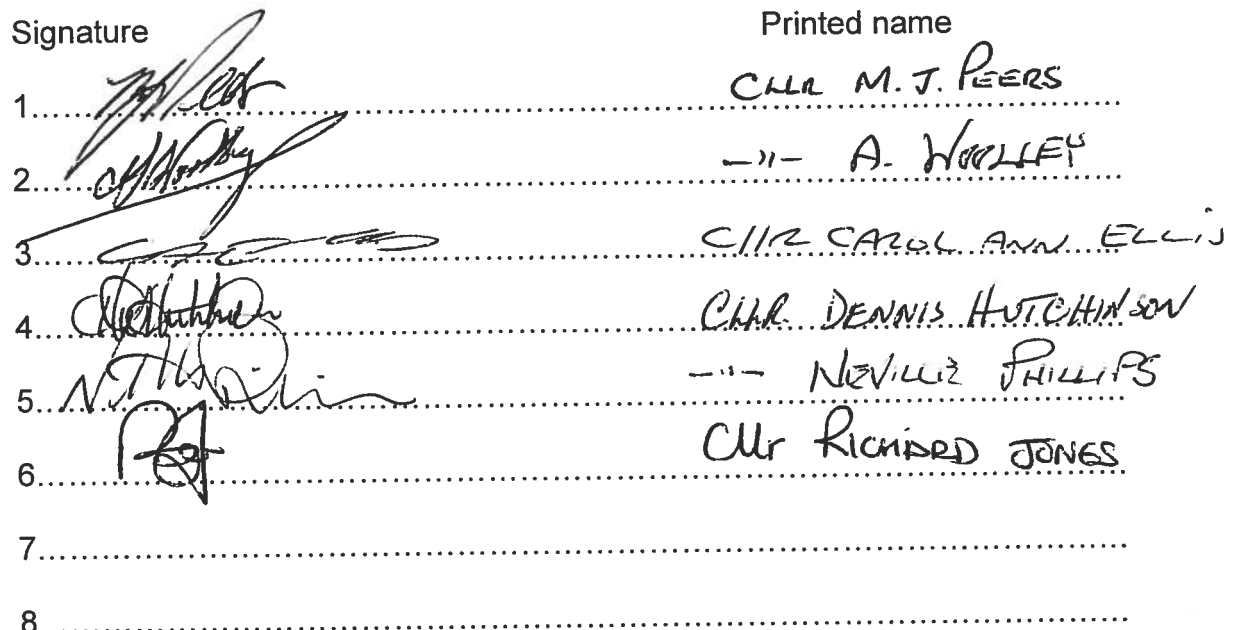 Signature Printed name
1. CLLR M.J. PEERS
2. —"— A. WOOLLEY
3. CllR CAROL ANN ELLIS
4. CLLR. DENNIS HUTCHINSON
5. —"— NEVILLE PHILLIPS
6. Cllr RICHARD JONES
7.
8